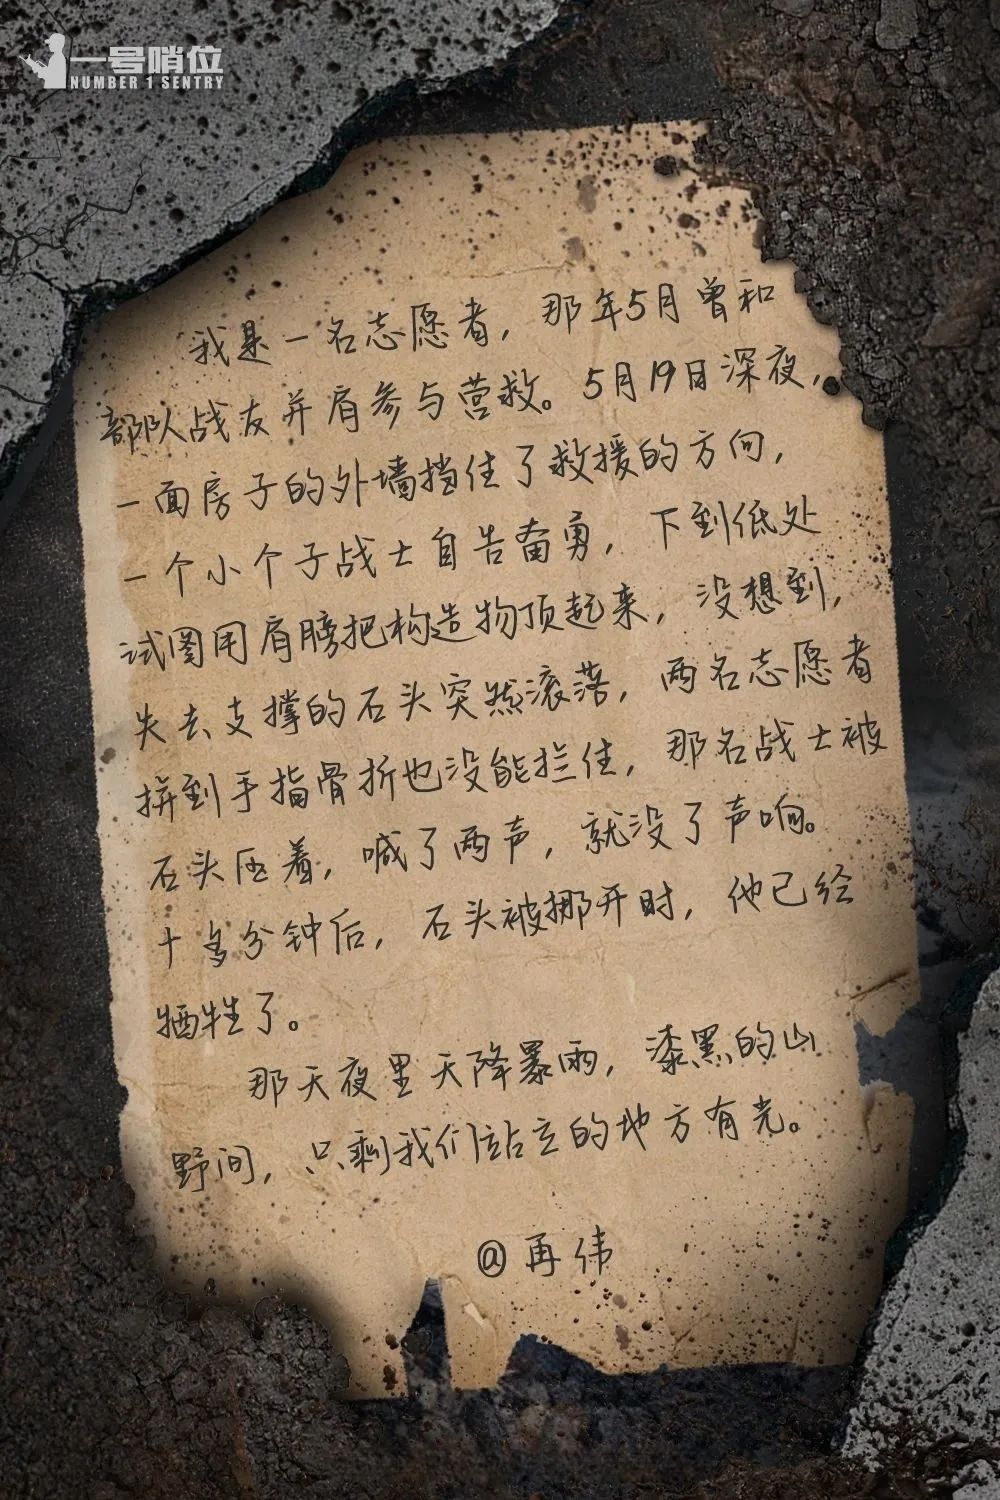 一号哨位
NUMBER 1 SENTRY
我是一名志愿者，那年5月曾和
部队战友并肩参与营救。5月19日深夜，
一面房子的外墙挡住了救援的方向，
一个小个子战士自告奋勇，下到低处
试图用肩膀把构造物顶起来，没想到，
失去支撑的石头突然滚落，两名志愿者
拼到手指骨折也没能拦住，那名战士被
石头压着，喊了两声，就没了声响。
十多分钟后，石头被挪开时，他已经
牺牲了。
那天夜里天降暴雨，漆黑的山
野间，只剩我们站立的地方有光。
@再伟